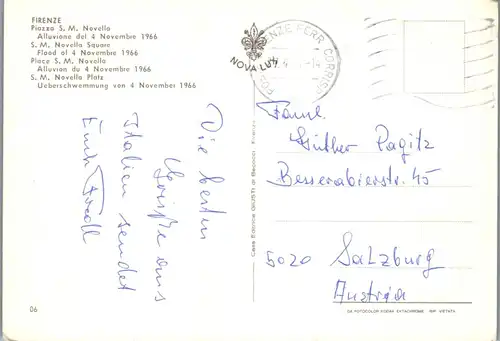 FIRENZE
Piazza S. M. Novella
Alluvione del 4 Novembre 1966
S. M. Novella Square
Flood of 4 Novembre 1966
Place S. M. Novella
Alluvion du 4 Novembre 1966
S. M. Novella Platz
Ueberschwemmung von 4 November 1966
NOVA LUX
Die besten
Grüße aus
Italien sendet
Faml.
Günther Pagitz
Besserabierstr. 45
5020 Salzburg
Austria
06
DA FOTOCOLOR KODAK EKTACHROME RIP. VIETATA